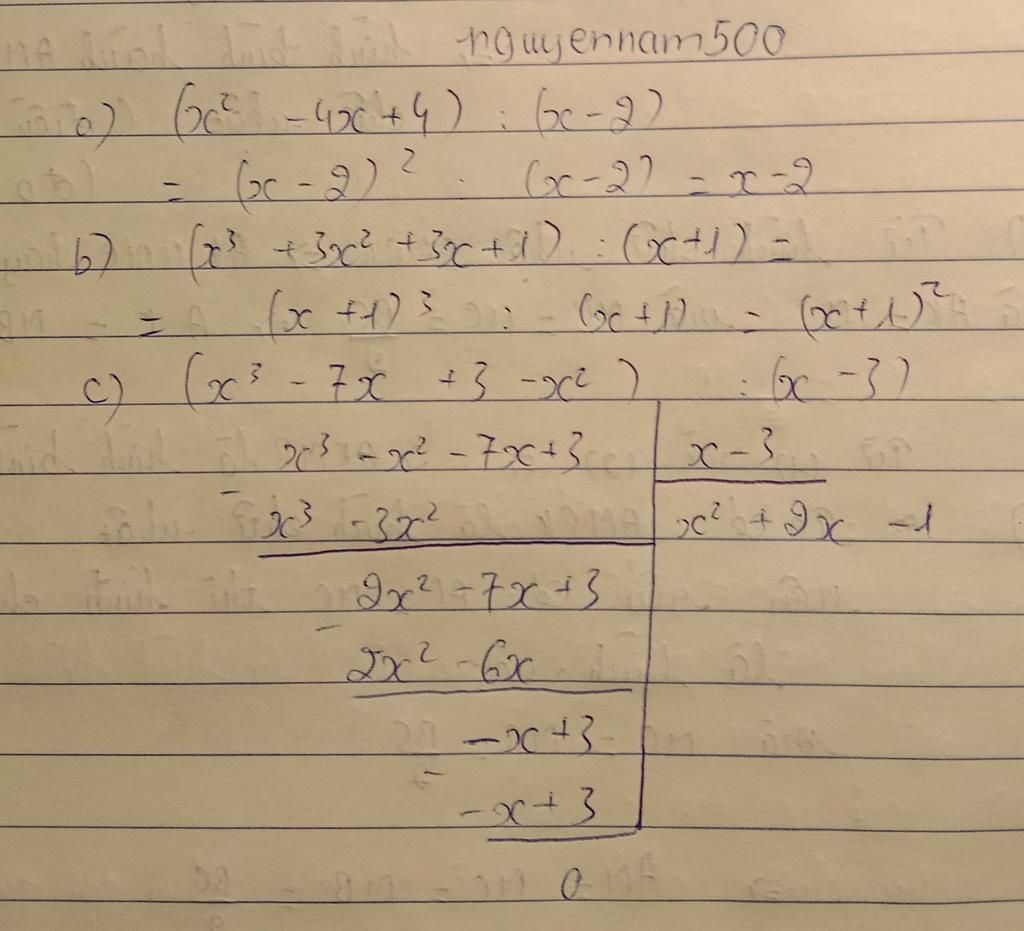 nguyennam500
a) (x² - 4x + 4) : (x - 2)
= (x - 2)² . (x - 2) = x - 2
b) (x³ + 3x² + 3x + 1) : (x + 1) =
= (x + 1)³ : (x + 1) = (x + 1)²
c) (x³ - 7x + 3 - x²) : (x - 3)
x³ - x² - 7x + 3 | x - 3
- x³ - 3x² | x² + 2x - 1
2x² - 7x + 3
- 2x² - 6x
-x + 3
- -x + 3
0